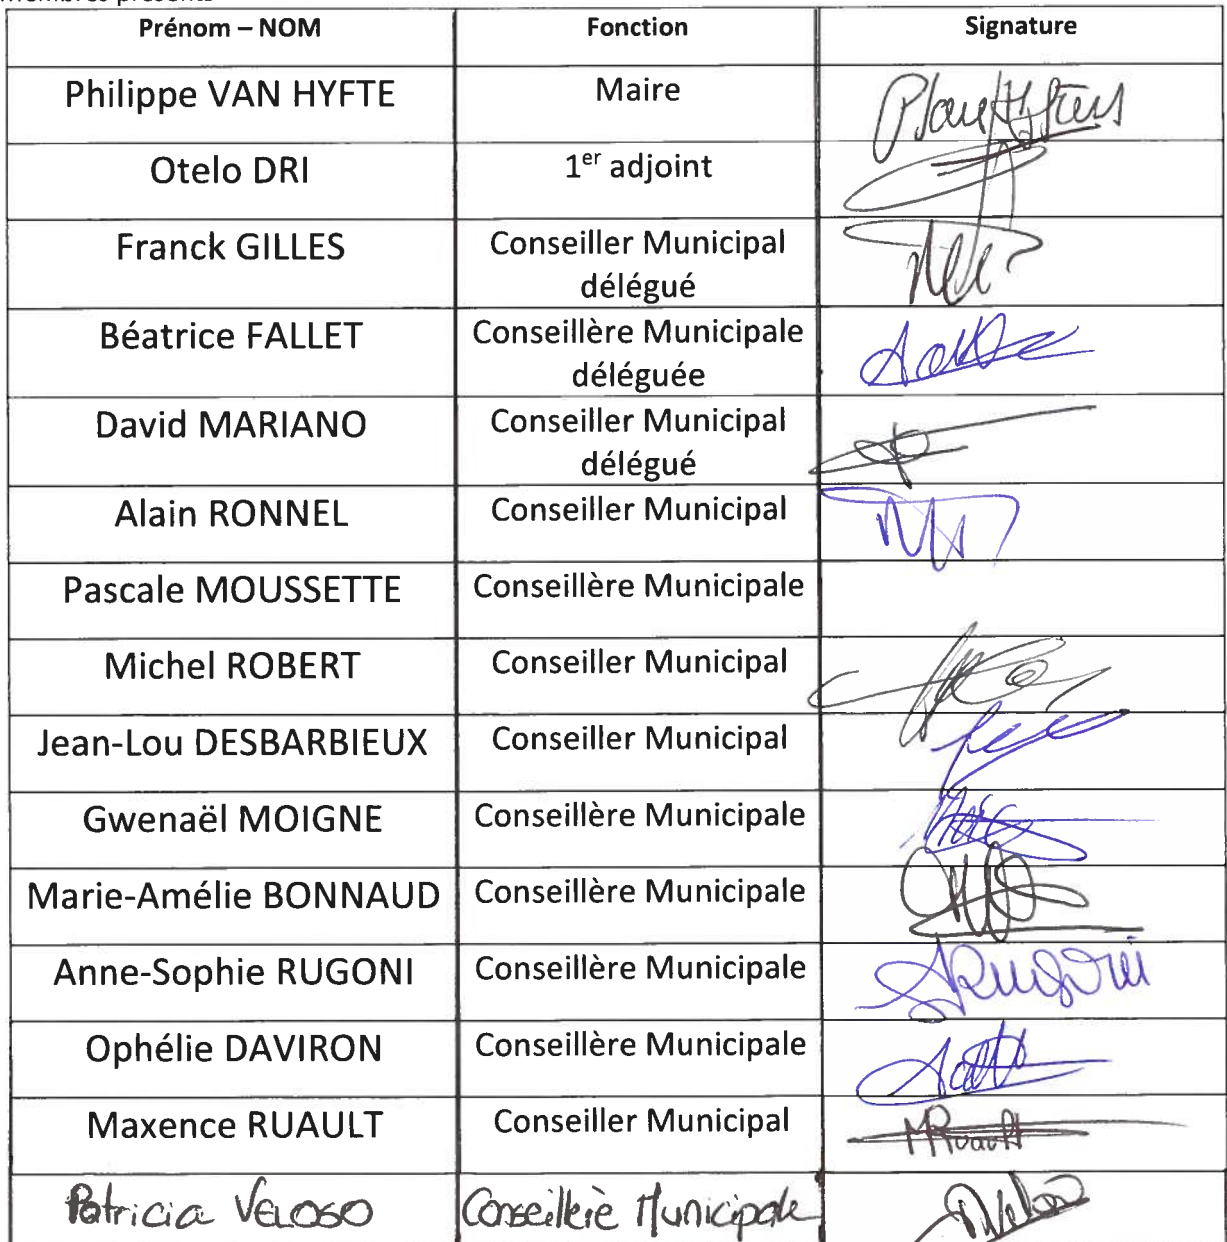 Prénom – NOM Fonction Signature
Philippe VAN HYFTE Maire
Otelo DRI 1er adjoint
Franck GILLES Conseiller Municipal
délégué
Béatrice FALLET Conseillère Municipale
déléguée
David MARIANO Conseiller Municipal
délégué
Alain RONNEL Conseiller Municipal
Pascale MOUSSETTE Conseillère Municipale
Michel ROBERT Conseiller Municipal
Jean-Lou DESBARBIEUX Conseiller Municipal
Gwenaël MOIGNE Conseillère Municipale
Marie-Amélie BONNAUD Conseillère Municipale
Anne-Sophie RUGONI Conseillère Municipale ARugoni
Ophélie DAVIRON Conseillère Municipale
Maxence RUAULT Conseiller Municipal MRuault
Patricia VELOSO Conseillère Municipale